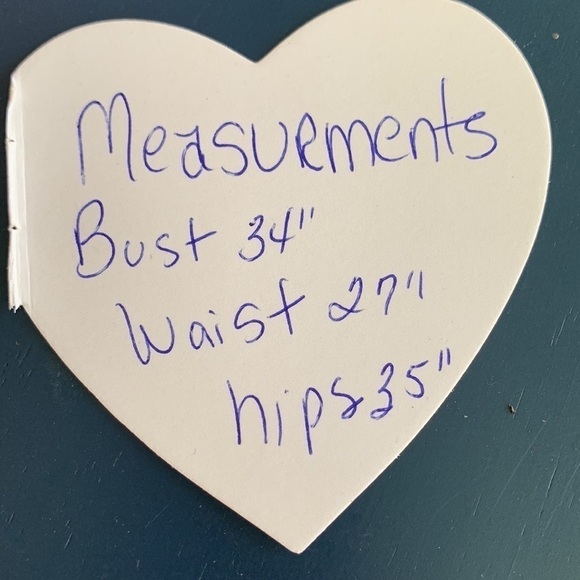 Measurements
Bust 34"
Waist 27"
hips 35"